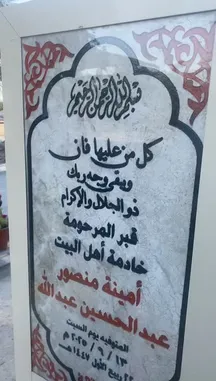 بسم الله الرحمن الرحيم
كل من عليها فان
ويبقى وجه ربك
ذو الجلال والإكرام
قبر المرحومة
خادمة أهل البيت
أمينة منصور
عبدالحسين عبدالله
المتوفيه يوم السبت
١٣ / ٩ / ٢٠٢٥ م
ربيع الأول ١٤٤٧ هـ